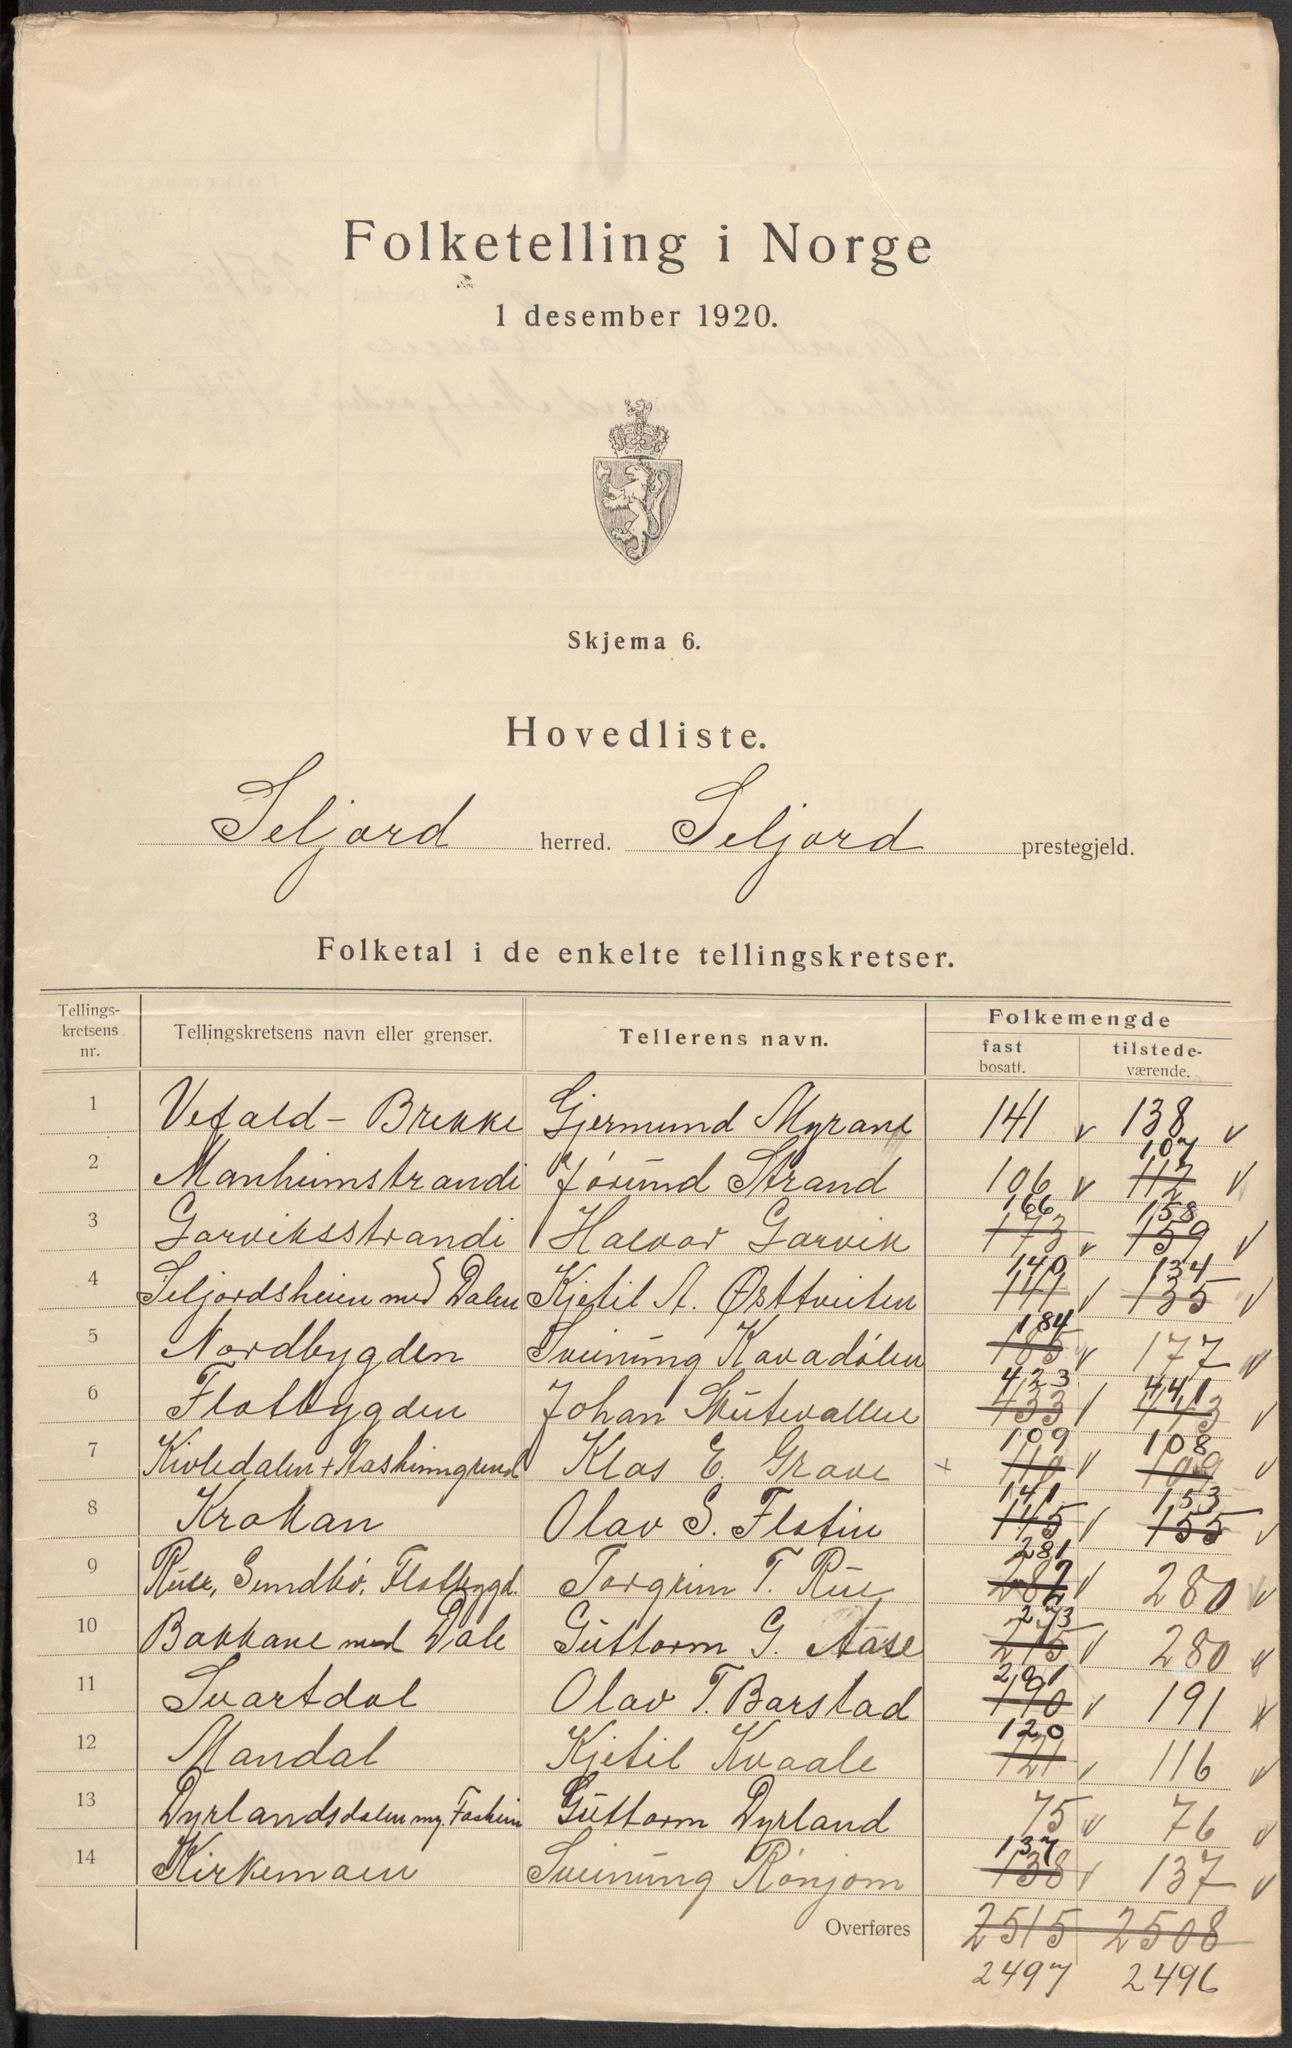 Folketelling i Norge
1 desember 1920.
Skjema 6.
Hovedliste.
Seljord herred. Seljord prestegjeld.
Folketal i de enkelte tellingskretser.
Tellings-kretsens nr. Tellingskretsens navn eller grenser. Tellerens navn. Folkemengde fast bosatt. tilstede-værende.
1 Vefald - Brekke Gjermund Myrane 141 v 138 v
2 Manheimstrandi Jørund Strand 106 v 112 107 v
3 Garviksstrandi Halvor Garvik 173 166 v 159 158 v
4 Seljordsheien med Dalen Kjetil A. Østtveiten 141 140 v 135 134 v
5 Nordbygden Sveinung Kavadølen 185 184 v 177 v
6 Flatbygden Johan Skutevallen 433 423 v 443 441 v
7 Kivledalen + Aasheimgrend Klas E. Grave + 110 109 v 109 108 v
8 Krokan Olav S. Flatin 145 141 v 155 153 v
9 Rue, Sundbø, Flatbygd. Torgrim T. Rue 282 281 v 280 v
10 Bakkane med Dale Guttorm G. Aase 275 273 v 280 v
11 Svartdal Olav T. Barstad 190 201 v 191 v
12 Mandal Kjetil Kvaale 121 120 v 116 v
13 Dyrlandsdalen m/ Guttorm Dyrland 75 v 76 v
14 Kirkemoen Sveinung Rønjom 138 137 v 137 v
Overføres 2515 2508
2497 2496